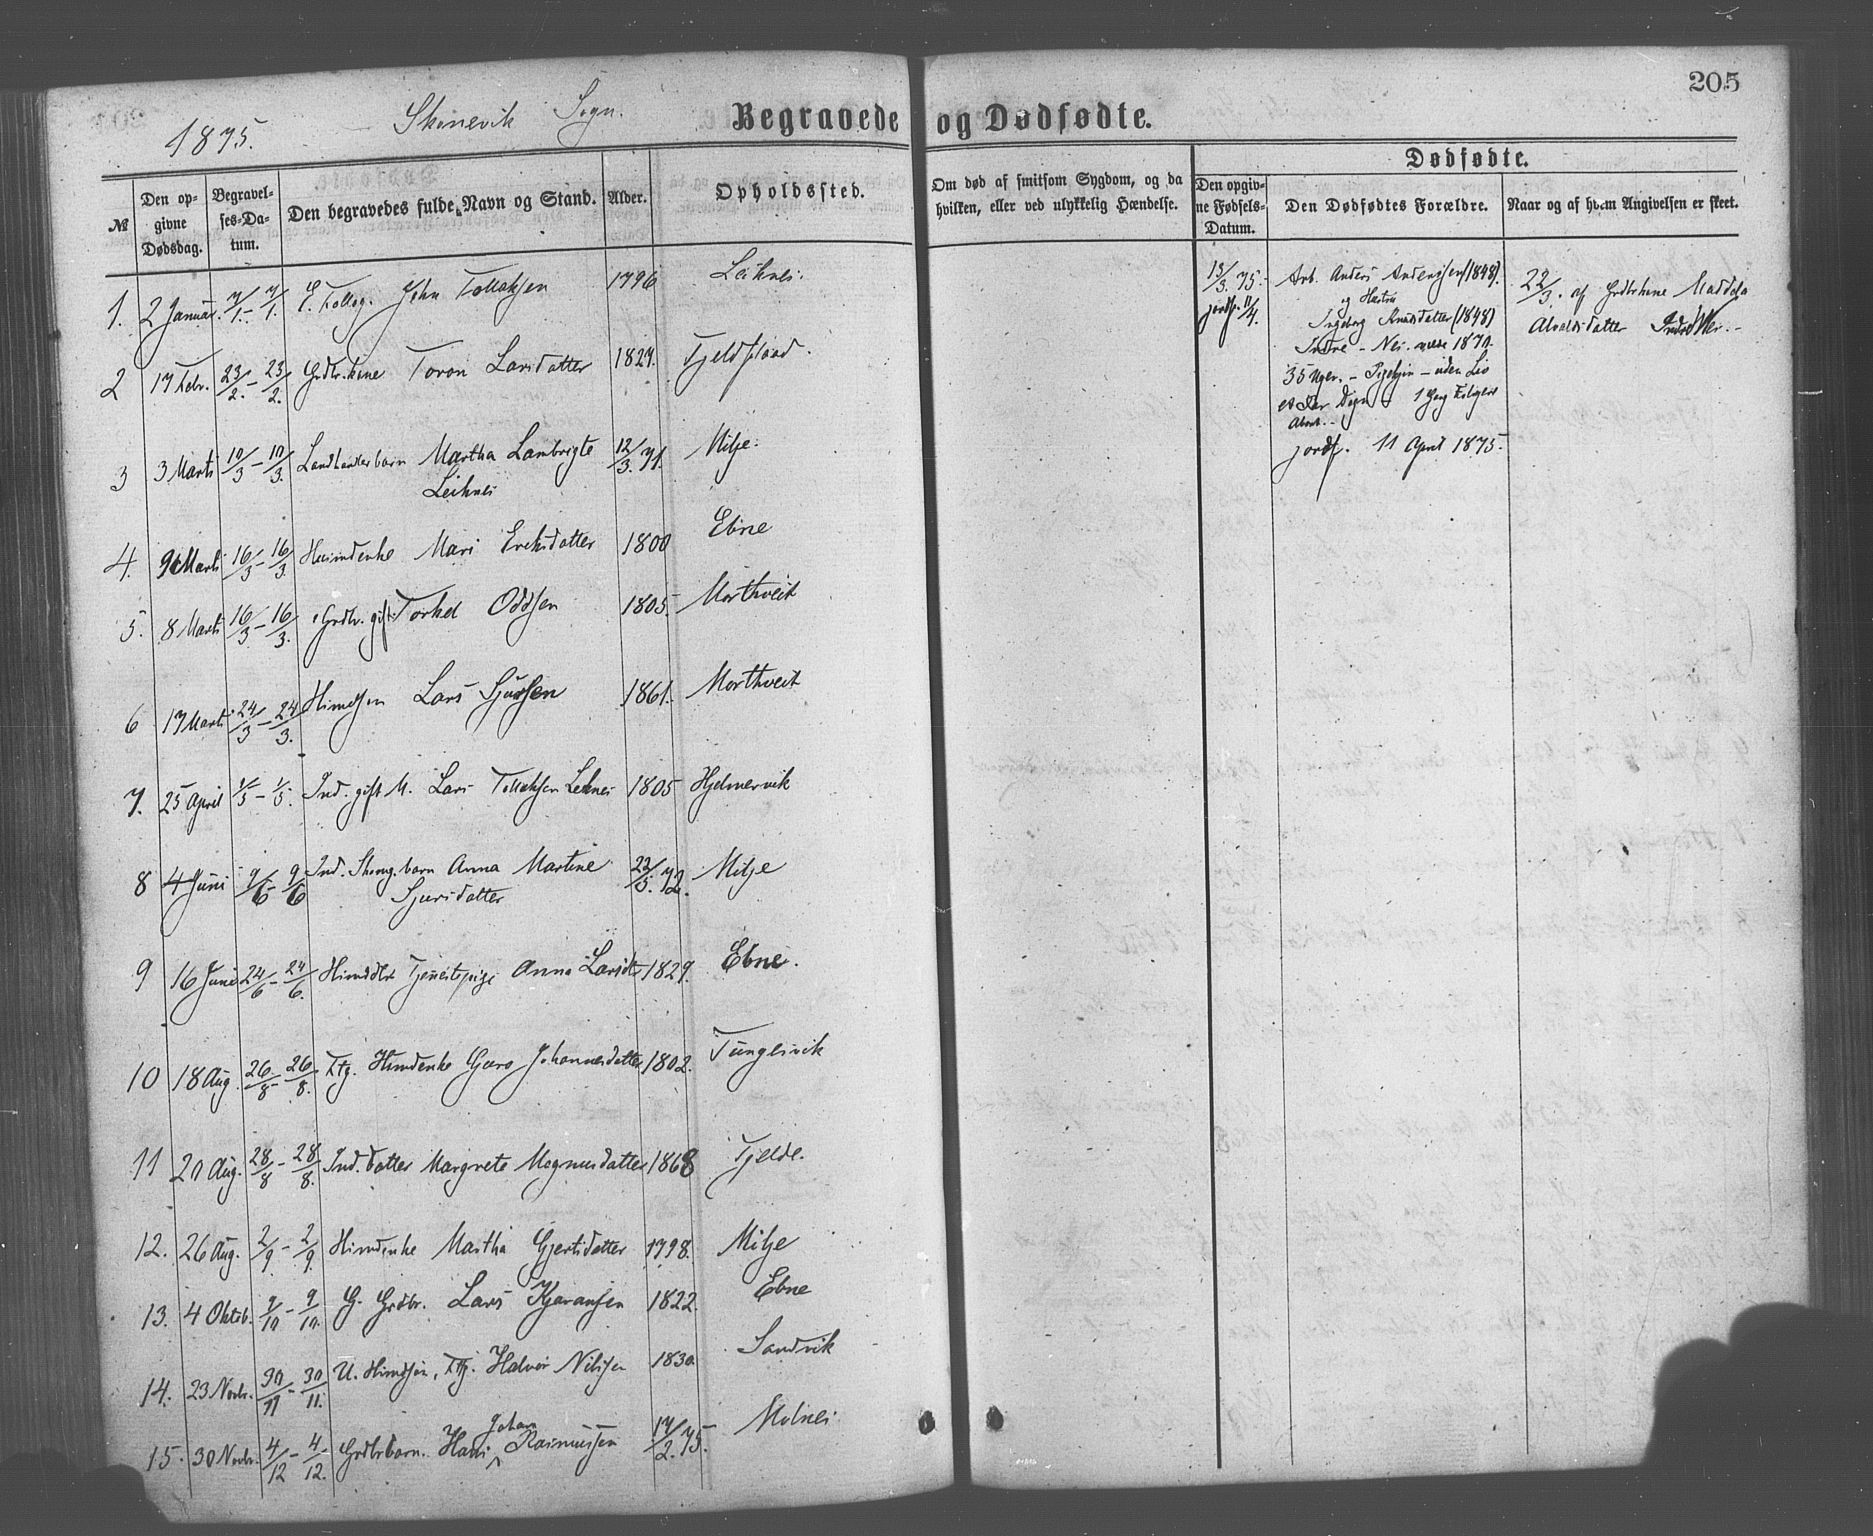 205
1875. Skonevik Sogn.
Begravede og Dødfødte.
Dødfødte.
№
Den opgivne Dødsdag.
Begravelses-Datum.
Den begravedes fulde Navn og Stand.
Alder.
Opholdssted.
Om død af smitsom Sygdom, og da hvilken, eller ved ulykkelig Hændelse.
Den opgivne Fødsels-Datum.
Den Dødfødtes Forældre.
Naar og af hvem Angivelsen er skeet.
1. 2 Januar. 7/1 - 7/1. John Tollaksen 1796 Leiknes.
2 17 Febr. 23/2. - 23/2. Grdbr.kone Toron Larsdatter 1827. Tjeldflaad.
3 3 Marts 10/3 - 10/3. Landhandlerbarn Martha Lambrigte 12/3. 71. Milje.
Leiknes
4. 9 Marts 16/3 - 16/3. Huusmdenke Mari Eriksdatter 1800 Ebne
5. 8 Marts 16/3 - 16/3. Grdbr. gift Torkel Oddsen 1805. Morthveit
6 17 Marts 24/3 - 24/3. Hsmdsøn Lars Sjursen 1861. Morthveit
7. 25 April 1/5 - 1/5. Ind. gift M. Lars Tollaksen Leknes 1805 Hjelmervik
8 4 Juni 9/6 - 9/6 Ind. barn Anna Martine 22/5. 72. Milje
Sjursdatter
9 16 Juni 24/6 - 24/6. Hsmddtr Tjenestepige Anna Larsdtr 1829. Ebne.
10 18 Aug. 26/8 - 26/8. Ftg. Hsmdenke Gjøro Johannesdatter 1802. Tungesvik
11 20 Aug. 28/8 - 28/8. Ind. datter Margrete Magnusdatter 1868 Tjelde.
12. 26 Aug. 2/9 - 2/9. Hsmdenke Martha Gjertsdatter 1798. Milje
13. 4 Oktob. 9/10 - 9/10. G. Grdbr. Lars Kjaransen 1822. Ebne
14. 23 Novbr. 30/11 - 30/11. U. Hsmdsøn, Ftg. Halvor Nilssen 1830 Sandvik
Johan
15. 30 Novbr. 4/12 - 4/12. Grdbrbarn. Hans Rasmussen 17/2. 75. Molnes
13/3. 75. Arb. Anders Andersen (1848). 22/3. af Grdbrkone Madda
jordf. 11/4. og Hustru
Ingeborg Knutsdatter (1848) Alvaldsdatter Indre Nes. -
Indre - Nes. 1870.
35 Uger. - Pigebarn - uden Liv
jordf. 11 April 1875.